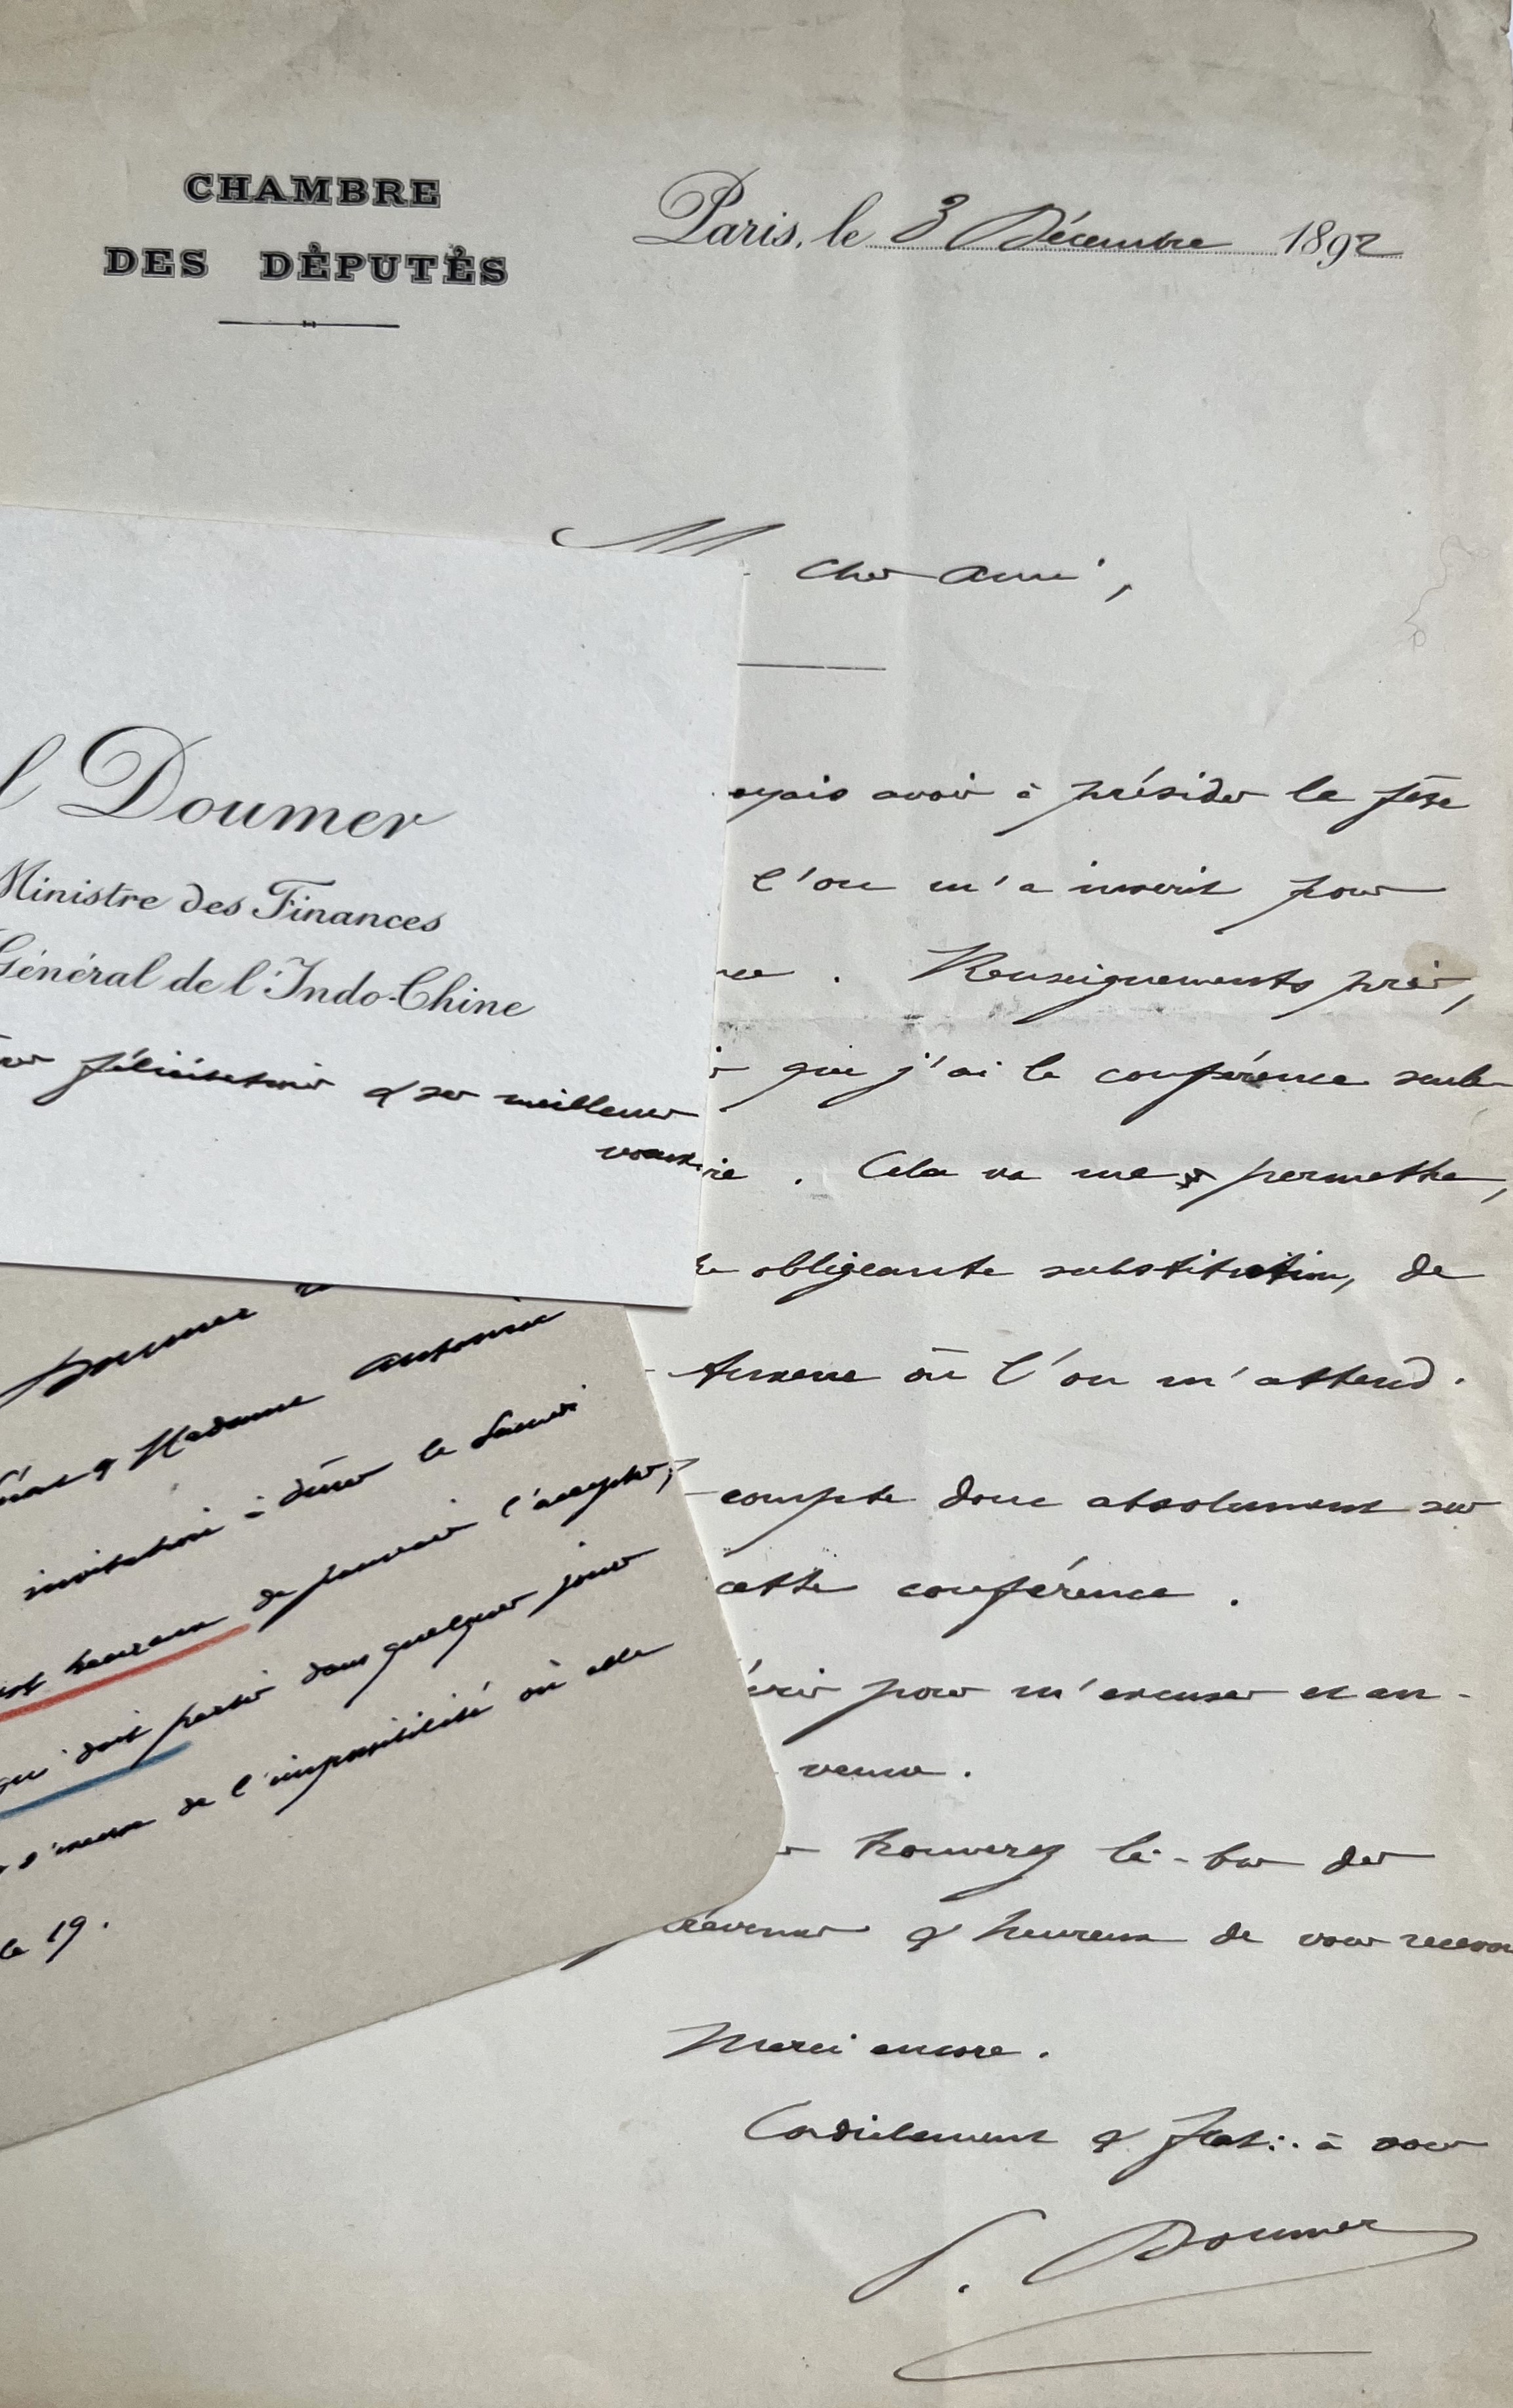 CHAMBRE
DES DÉPUTÉS
Paris, le 3 Décembre 1892
M cher ami,
oyais avoir à présider la fête
l'on m'a inscrit pour
ce. Renseignements pris,
que j'ai la conférence seule
ie. Cela va me permettre,
obligeante substitution, de
où l'on m'attend.
compte donc absolument sur
cette conférence.
pour m'excuser et an-
venue.
trouverez là-bas des
& heureux de vous recevoir
Merci encore.
Cordialement & frat∴ à vous
P. Doumer
l Doumer
Ministre des Finances
Général de l'Indo-Chine
félicitations & ses meilleurs
voeux
Doumer
& Madame Antonin
invitation à dîner le Samedi
heureux de pouvoir l'accepter,
qui doit partir dans quelques jours
s'excuse de l'impossibilité où elle
le 19.